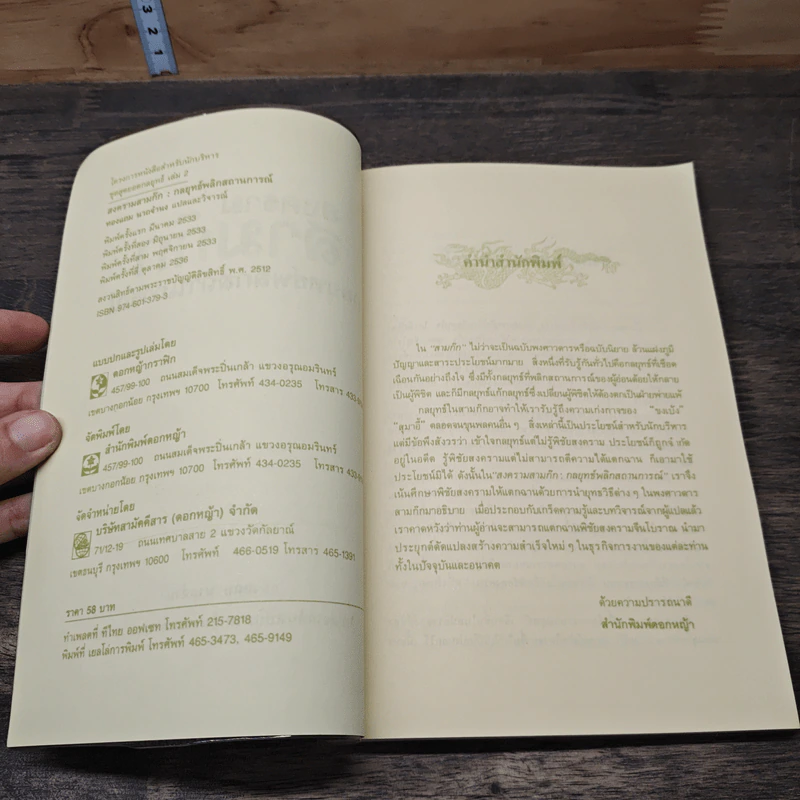 3
2
1
โครงการหนังสือสำหรับนักบริหาร
ชุดสุดยอดกลยุทธ์ เล่ม 2
สงครามสามก๊ก : กลยุทธ์พลิกสถานการณ์
ทองแถม นาถจำนง แปลและวิจารณ์
พิมพ์ครั้งแรก มีนาคม 2533
พิมพ์ครั้งที่สอง มิถุนายน 2533
พิมพ์ครั้งที่สาม พฤศจิกายน 2533
พิมพ์ครั้งที่สี่ ตุลาคม 2536
สงวนสิทธิตามพระราชบัญญัติลิขสิทธิ์ พ.ศ. 2512
ISBN 974-601-379-3
แบบปกและรูปเล่มโดย
ดอกหญ้ากราฟิก
457/99-100 ถนนสมเด็จพระปิ่นเกล้า แขวงอรุณอมรินทร์
เขตบางกอกน้อย กรุงเทพฯ 10700 โทรศัพท์ 434-0235 โทรสาร
จัดพิมพ์โดย
สำนักพิมพ์ดอกหญ้า
457/99-100 ถนนสมเด็จพระปิ่นเกล้า แขวงอรุณอมรินทร์
เขตบางกอกน้อย กรุงเทพฯ 10700 โทรศัพท์ 434-0235 โทรสาร
จัดจำหน่ายโดย
บริษัทสามัคคีสาร (ดอกหญ้า) จำกัด
71/12-19 ถนนเทศบาลสาย 2 แขวงวัดกัลยาณ์
เขตธนบุรี กรุงเทพฯ 10600 โทรศัพท์ 466-0519 โทรสาร 465-1391
ราคา 58 บาท
ทำเพลตที่ ทีไทย ออฟเซท โทรศัพท์ 215-7818
พิมพ์ที่ เยลโล่การพิมพ์ โทรศัพท์ 465-3473, 465-9149
คำนำสำนักพิมพ์
ใน "สามก๊ก" ไม่ว่าจะเป็นฉบับพงศาวดารหรือฉบับนิยาย ล้วนแฝงภูมิ
ปัญญาและสาระประโยชน์มากมาย สิ่งหนึ่งที่รับรู้กันทั่วไปคือกลยุทธ์ที่เชือด
เฉือนกันอย่างถึงใจ ซึ่งมีทั้งกลยุทธ์ที่พลิกสถานการณ์ของผู้อ่อนด้อยให้กลาย
เป็นผู้พิชิต และก็มีกลยุทธ์แก้กลยุทธ์ซึ่งเปลี่ยนผู้พิชิตให้ต้องตกเป็นฝ่ายพ่ายแพ้
กลยุทธ์ในสามก๊กอาจทำให้เรารับรู้ถึงความเก่งกาจของ "ขงเบ้ง"
"สุมาอี้" ตลอดจนขุนพลคนอื่น ๆ สิ่งเหล่านี้เป็นประโยชน์สำหรับนักบริหาร
แต่มีข้อพึงสังวรว่า เข้าใจกลยุทธ์แต่ไม่รู้พิชัยสงคราม ประโยชน์ก็ถูกจำกัด
อยู่ในอดีต รู้พิชัยสงครามแต่ไม่สามารถตีความให้แตกฉาน ก็เอามาใช้
ประโยชน์มิได้ ดังนั้นใน "สงครามสามก๊ก : กลยุทธ์พลิกสถานการณ์" เราจึง
เน้นศึกษาพิชัยสงครามให้แตกฉานด้วยการนำยุทธวิธีต่าง ๆ ในพงศาวดาร
สามก๊กมาอธิบาย เมื่อประกอบกับเกร็ดความรู้และบทวิจารณ์จากผู้แปลแล้ว
เราคาดหวังว่าท่านผู้อ่านจะสามารถแตกฉานพิชัยสงครามจีนโบราณ นำมา
ประยุกต์ดัดแปลงสร้างความสำเร็จใหม่ ๆ ในธุรกิจการงานของแต่ละท่าน
ทั้งในปัจจุบันและอนาคต
ด้วยความปรารถนาดี
สำนักพิมพ์ดอกหญ้า